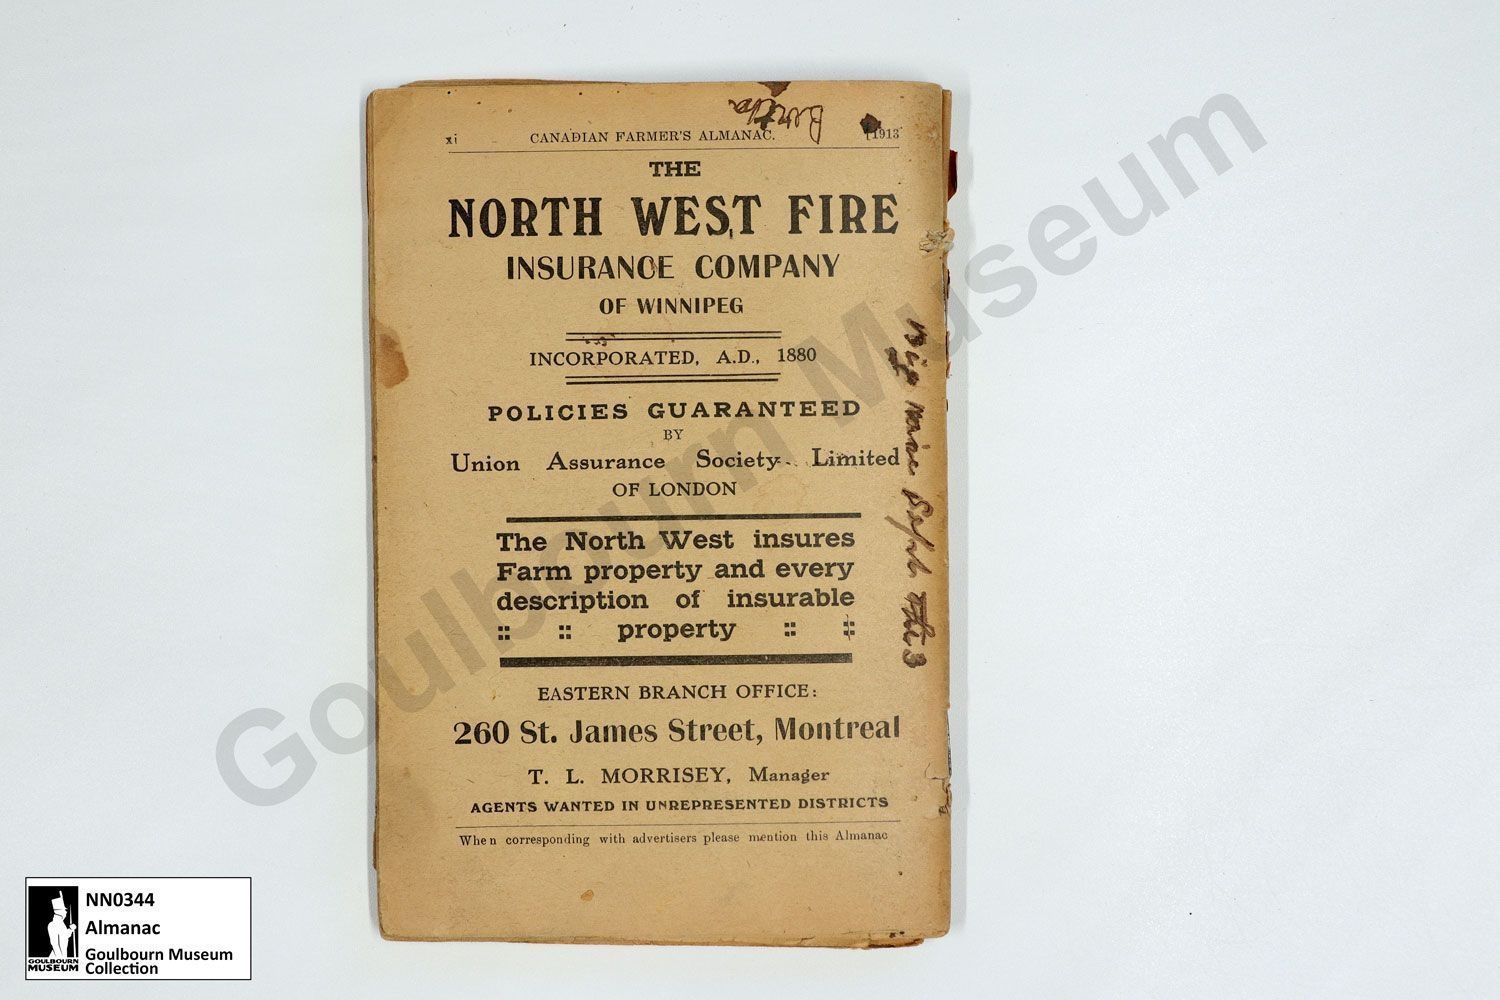 xi CANADIAN FARMER'S ALMANAC. [1913
THE
NORTH WEST FIRE
INSURANCE COMPANY
OF WINNIPEG
INCORPORATED, A.D., 1880
POLICIES GUARANTEED
BY
Union Assurance Society Limited
OF LONDON
The North West insures
Farm property and every
description of insurable
:: :: property :: ::
EASTERN BRANCH OFFICE:
260 St. James Street, Montreal
T. L. MORRISEY, Manager
AGENTS WANTED IN UNREPRESENTED DISTRICTS
When corresponding with advertisers please mention this Almanac
Goulbourn Museum
NN0344
Almanac
Goulbourn Museum
Collection
GOULBOURN
MUSEUM